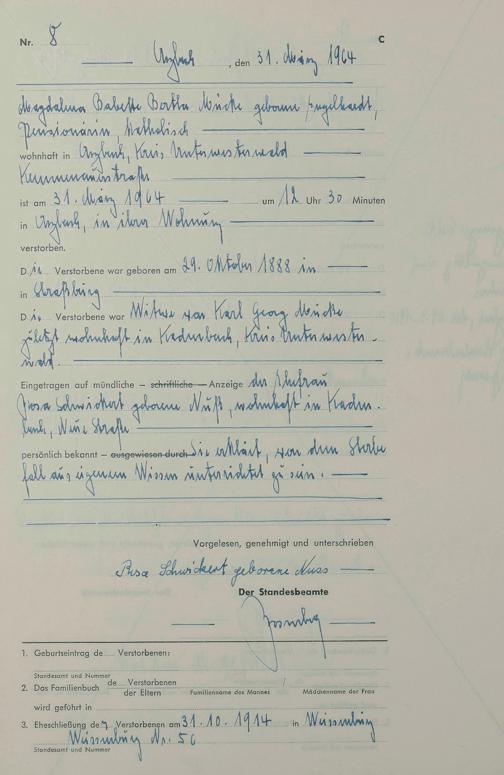 Nr. 8 C
Arzbach, den 31. März 1964
Magdalena Babette Bertha Mücke geborene Engelhardt,
Pensionärin, katholisch
wohnhaft in Arzbach, Kreis Unterwesterwald
Kemmenauerstraße
ist am 31. März 1964 um 12 Uhr 30 Minuten
in Arzbach, in ihrer Wohnung
verstorben.
Die Verstorbene war geboren am 29. Oktober 1888 in
in Straßburg
Die Verstorbene war Witwe von Karl Georg Mücke
zuletzt wohnhaft in Kadenbach, Kreis Unterwester-
wald.
Eingetragen auf mündliche – schriftliche – Anzeige der Ehefrau
Rosa Schwickert geborene Nuß, wohnhaft in Kaden-
bach, Neue Straße
persönlich bekannt – ausgewiesen durch Sie erklärt, von dem Sterbe
fall aus eigenem Wissen unterrichtet zu sein.
Vorgelesen, genehmigt und unterschrieben
Rosa Schwickert geborene Nuss
Der Standesbeamte
1. Geburtseintrag de Verstorbenen:
Standesamt und Nummer
2. Das Familienbuch de Verstorbenen
der Eltern Familienname des Mannes / Mädchenname der Frau
wird geführt in
3. Eheschließung der Verstorbenen am 31.10.1914 in Weissenburg
Weissenburg Nr. 56
Standesamt und Nummer